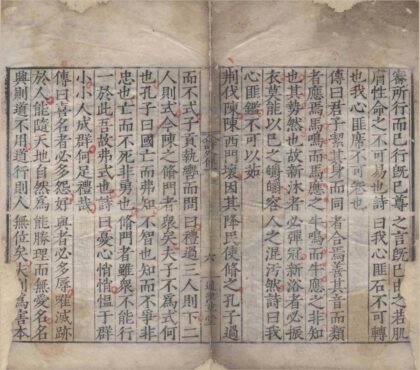 審所行而已行既已尊之言既已由之若肌
膚性命之不可易也詩曰我心匪石不可轉
也我心匪席不可卷也
傳曰君子潔其身而同者合焉善其音而類
者應焉馬鳴而馬應之牛鳴而牛應之非知
也其勢然也故新沐者必彈冠新浴者必振
衣莫能以己之皭皭容人之混污然詩曰我
心匪鑒不可以茹
荊伐陳陳西門壞因其降民使脩之孔子過
六 通津草堂
而不式子貢執轡而問曰禮過三人則下二
人則式今陳之脩門者眾矣夫子不為式何
也孔子曰國亡而弗知不智也知而不爭非
忠也亡而不死非勇也脩門者雖眾不能行
一於此吾故弗式也詩曰憂心悄悄慍于群
小小人成群何足禮哉
傳曰喜名者必多怨好與者必多辱唯滅跡
於人能隨天地自然為能勝理而無愛名名
興則道不用道行則人無位矣夫利為害本